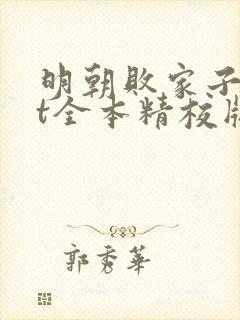 明朝败家子
t全本精校版
郭秀華